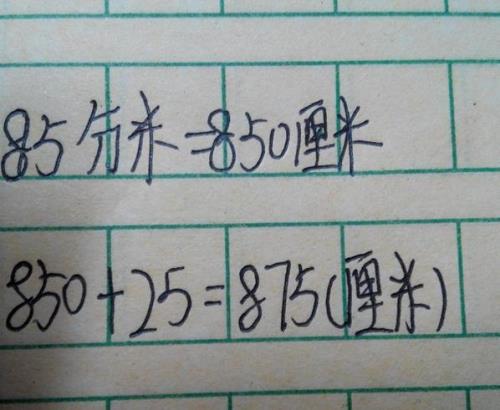 85分米=850厘米
850+25=875(厘米)